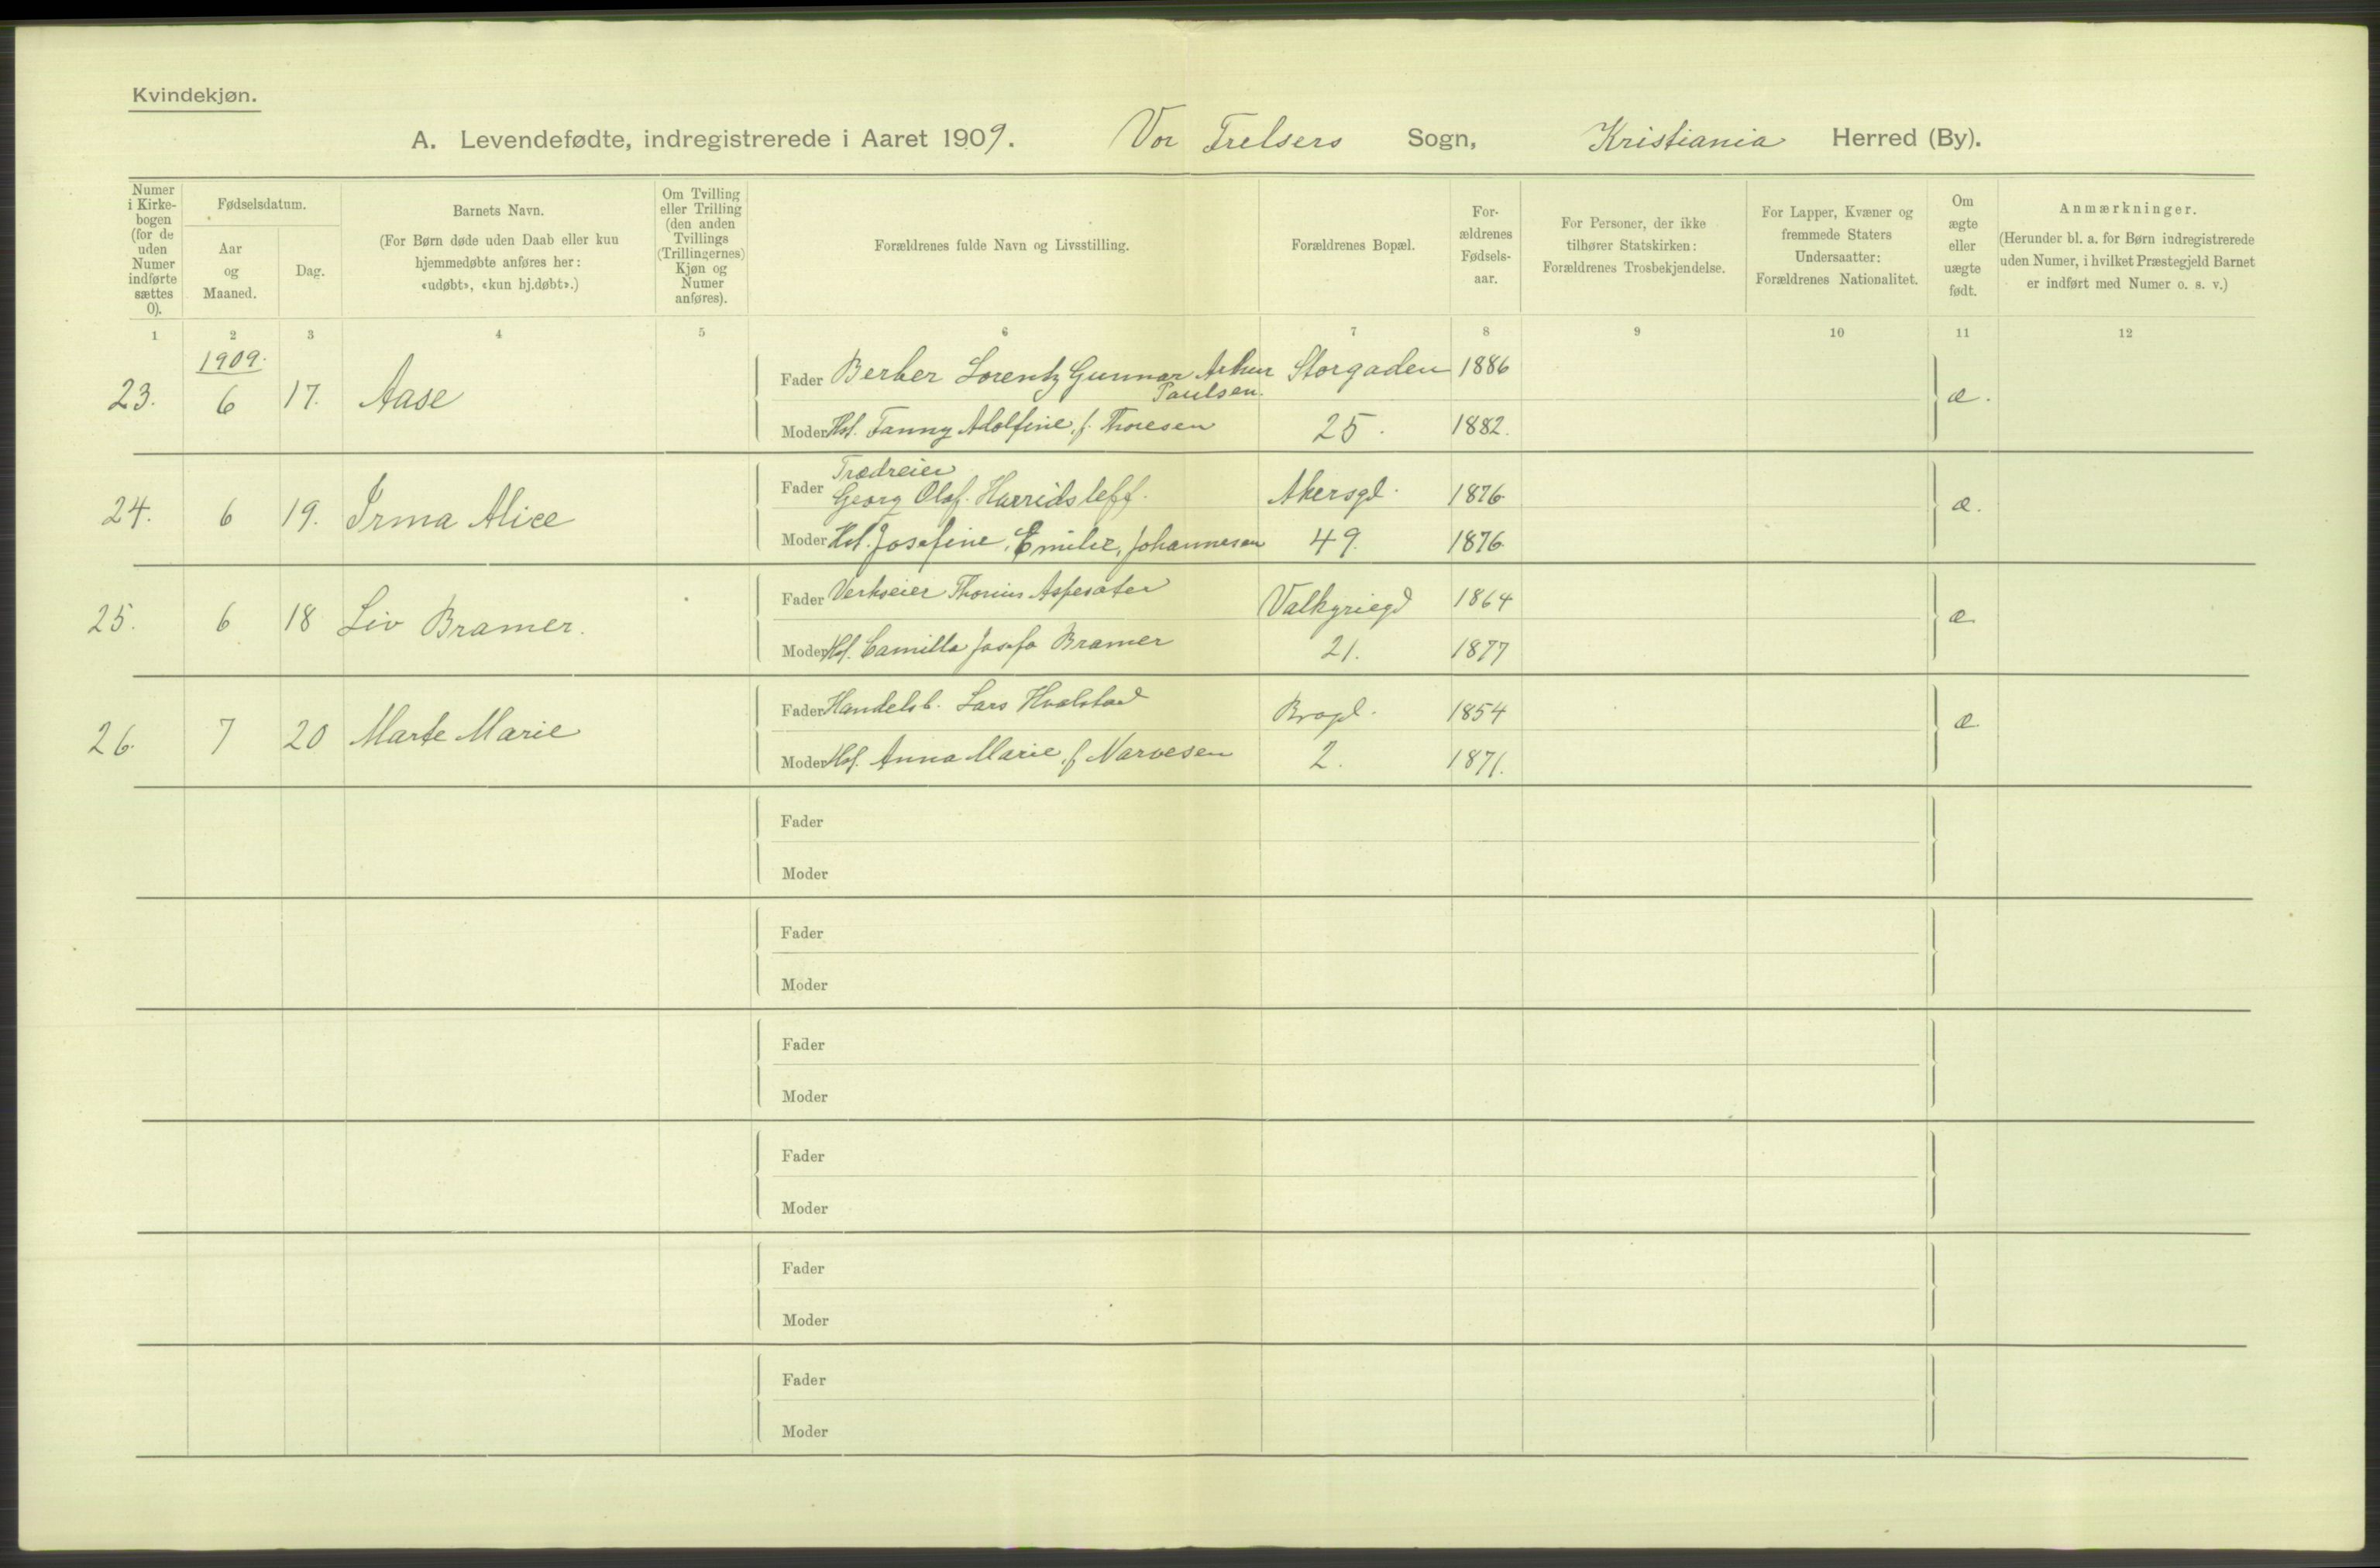 Kvindekjøn.
A. Levendefødte, indregistrerede i Aaret 1909. Vor Frelsers Sogn, Kristiania Herred (By).
Numer i Kirkebogen (for de uden Numer indførte sættes 0).
Fødselsdatum.
Aar og Maaned.
Dag.
Barnets Navn.
(For Børn døde uden Daab eller kun hjemmedøbte anføres her: «udøbt», «kun hj.døbt».)
Om Tvilling eller Trilling (den anden Tvillings (Trillingernes) Kjøn og Numer anføres).
Forældrenes fulde Navn og Livsstilling.
Forældrenes Bopæl.
Forældrenes Fødselsaar.
For Personer, der ikke tilhører Statskirken: Forældrenes Trosbekjendelse.
For Lapper, Kvæner og fremmede Staters Undersaatter: Forældrenes Nationalitet.
Om ægte eller uægte født.
Anmærkninger.
(Herunder bl. a. for Børn indregistrerede uden Numer, i hvilket Præstegjeld Barnet er indført med Numer o. s. v.)
1 2 3 4 5 6 7 8 9 10 11 12
1909.
23. 6 17. Aase
Fader Berber Lorentz Gunnar Arthur Paulsen. Storgaden 1886
Moder Hst. Fanny Adolfine, f. Thoresen 25. 1882.
æ.
24. 6 19. Irma Alice
Fader Trædreier Georg Olaf. Harridsleff. Akersgd. 1876
Moder Hst. Josefine, Emilie, Johannesen 49. 1876.
æ.
25. 6 18 Liv Bramer.
Fader Verkseier Thorius Aspesæter Valkyriegd 1864
Moder Hst. Camilla Josefa Bramer 21. 1877
æ.
26. 7 20 Marte Marie
Fader Handelsb. Lars Hvalstad Brogd. 1854
Moder Hst. Anna Marie, f Narvesen 2. 1871.
æ
Fader
Moder
Fader
Moder
Fader
Moder
Fader
Moder
Fader
Moder
Fader
Moder